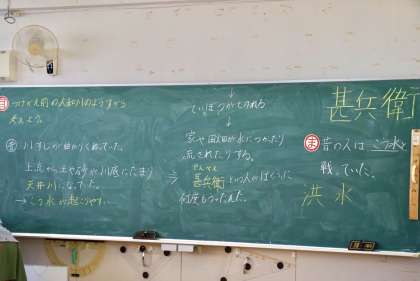 目 つけかえ前の大和川のようすから
考えよう。
考 川すじが曲がりくねっていた。
上流から土や砂が川底にたまり
天井川になっていた。
→こう水が起こりやすい。
↓
ていぼうがきれる
↓
家や田畑が水につかったり
流されたりする。
じんべえ
⇒ 甚兵衛という人が
何度もつったえた。
甚兵衛
ま 昔の人は こう水と
戦っていた。
洪水